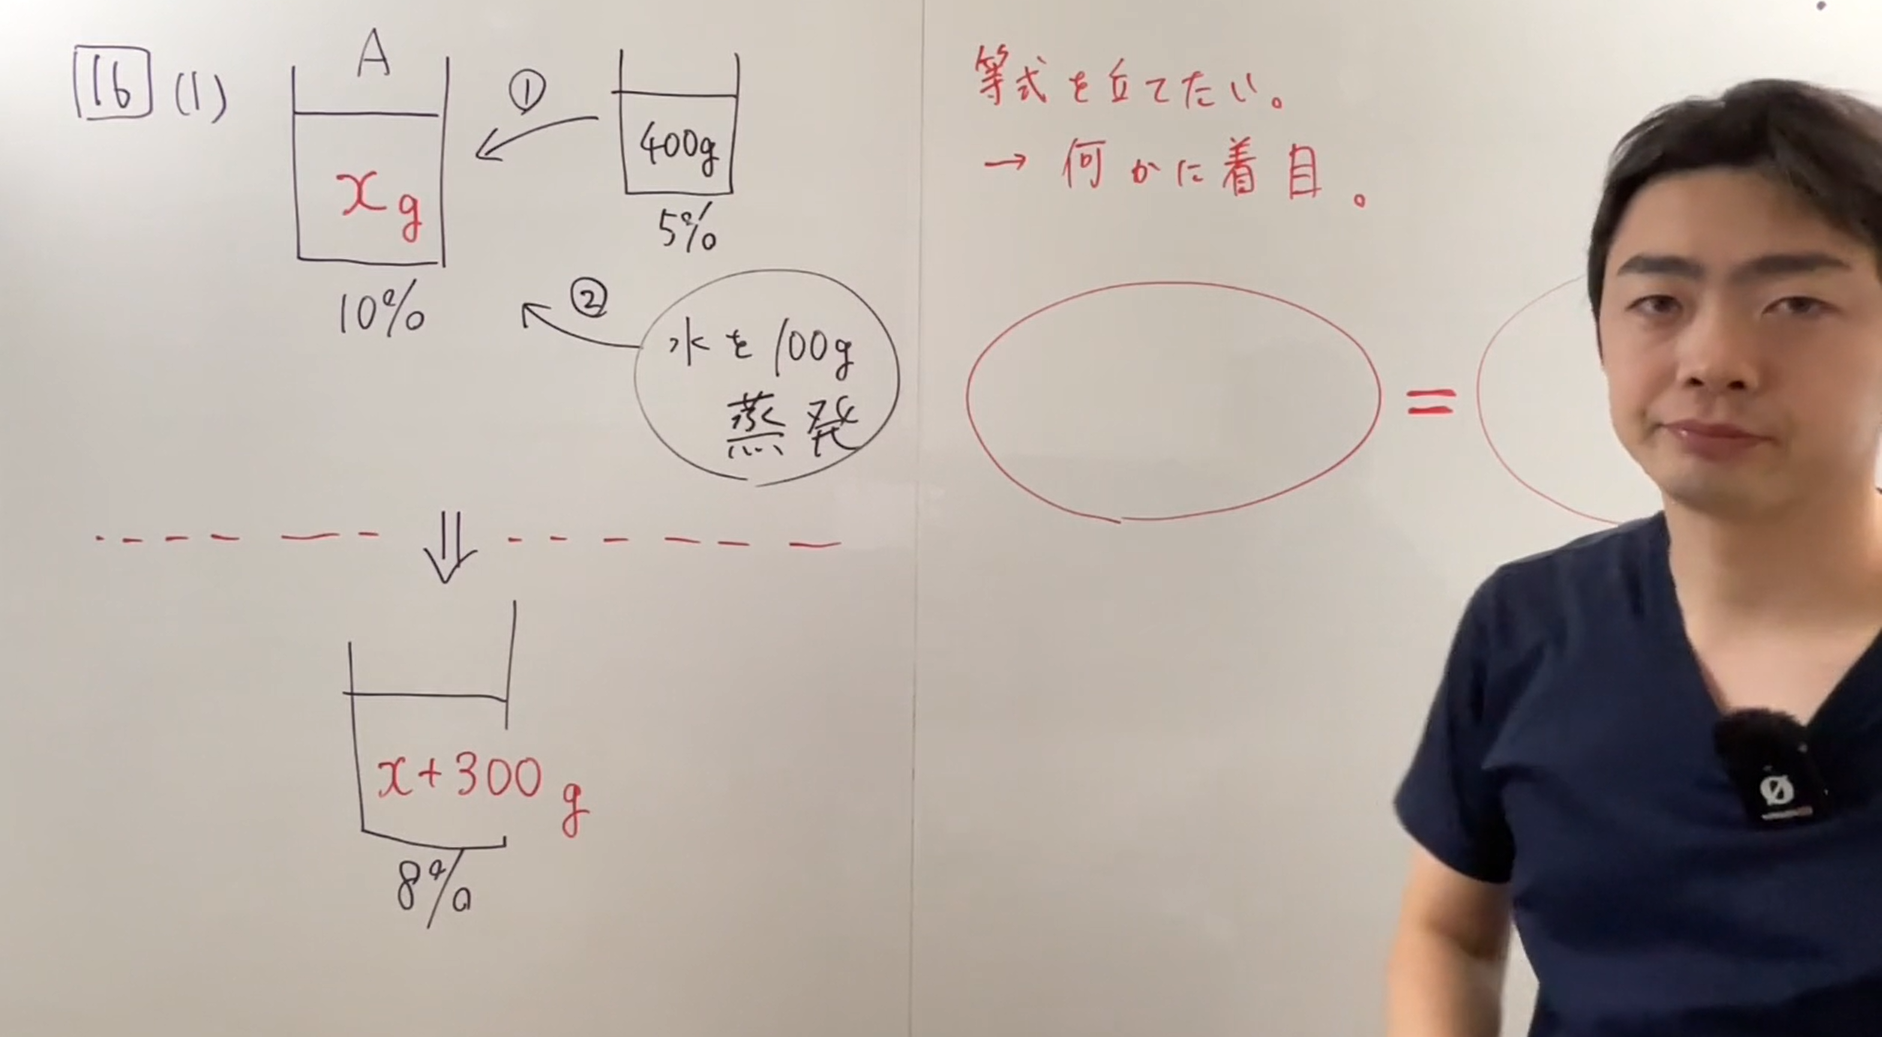 16 (1)
A
x g
10%
①
400g
5%
②
水を100g
蒸発
x+300 g
8%
等式を立てたい。
→ 何かに着目。
=